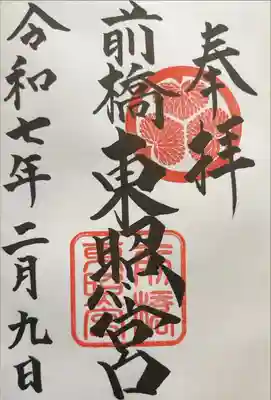 奉拝
前橋東照宮
令和七年二月九日
前橋東照宮